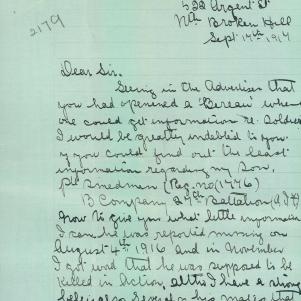 532 Argent St
Nth Broken Hill
Sept 17th 1917
2179
Dear Sir.
Seeing in the Advertiser that
you had opened a "Bereau" where
one could get information re. Soldiers
I would be greatly indebted to you
if you could find out the least
information regarding my Son,
Pte Smedman (Reg. no (1776)
B Company 27th Battalion (A.I.F)
now to give you what little information
I can he was reported missing on
August 4th 1916 and in November
I got word that he was supposed to be
Killed in Action, altho I have a strong